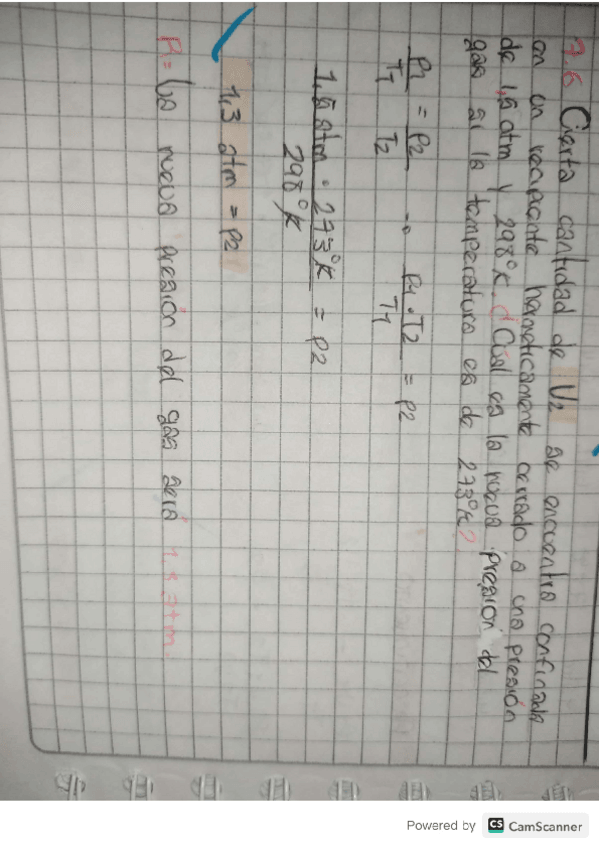 7.6 Cierta cantidad de U2 se encuentra confinada
en un recipiente hermeticamente cerrado a una presión
de 1,5 atm y 298°K. ¿Cúal es la nueva presión del
gas si la temperatura es de 273°K?
P1/T1 = P2/T2 → P1 · T2/T1 = P2
1,5 atm · 273°K/298°K = P2
1,3 atm = P2
R= La nueva presión del gas será 1,3 atm.
Powered by CS CamScanner